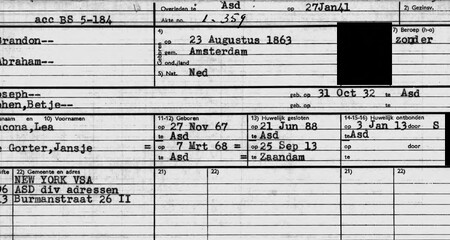 Overleden te Asd op 27Jan41 2) Gezinsv.
acc BS 5-184 Akte no. 1.359
4) 7) Beroep (h-o)
Brandon-- op 23 Augustus 1863 zonder
gem. Amsterdam
Abraham-- Geboren
5) Nat. Ned
oseph-- geb. op 31 Oct 32 te Asd
ohen,Betje-- geb. op te
naam en 10) Voornamen 11-12) Geboren 13) Huwelijk gesloten 14-15-16) Huwelijk ontbonden
acona,Lea op 27 Nov 67 op 21 Jun 88 op 3 Jan 13 door S
te Asd te Asd te Asd
e Gorter,Jansje = op 7 Mrt 68 = op 25 Sep 13 op door
te Asd = te Zaandam te
ifte 22) Gemeente en adres 21) 22) 21) 22)
NEW YORK VSA
06 ASD div adressen
13 Burmanstraat 26 II